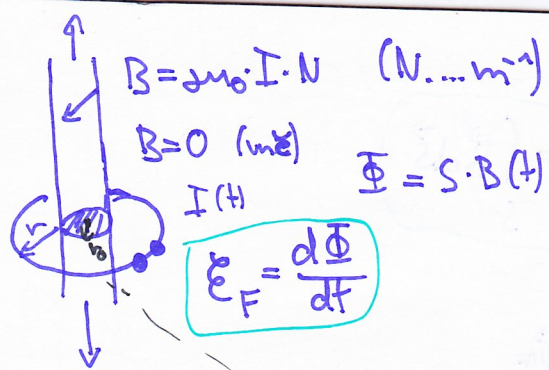 B = μ₀ · I · N (N....m⁻¹)
B = 0 (vně)
I(t)
Φ = S · B(t)
r
r₀
ℰ_F = dΦ/dt